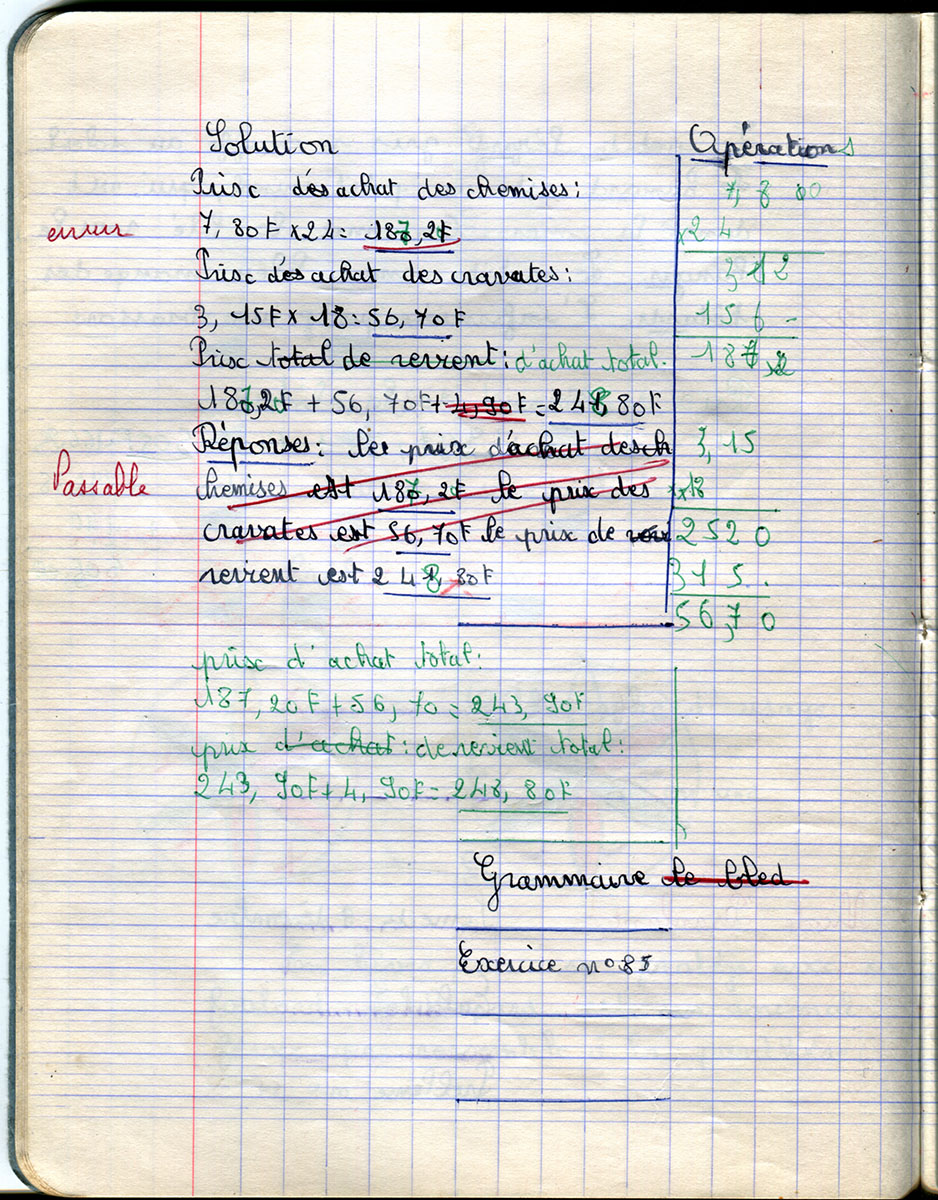 Solution
Opérations
Prix dés achat des chemises:
7, 80F x 24 = 187,2F
erreur
Prix dés achat des cravates:
3, 15F x 18 = 56, 70F
Prix total de revient: d'achat total.
187,2F + 56, 70F + 4,90F = 248, 80F
Réponses: les prix d'achat desch
Passable
chemises est 187, 2F le prix des
cravates est 56, 70F le prix de
revient est 248, 80F
7, 8 00
x 2 4
3 12
1 5 6 -
1 8 7,2
3, 15
x x 18
2 5 2 0
3 1 5 .
5 6, 7 0
prix d'achat total:
187, 20F + 56, 70 = 243, 90F
prix d'achat: de revient total:
243, 90F + 4, 90F = 248, 80F
Grammaire le bled
Exercice n° 85